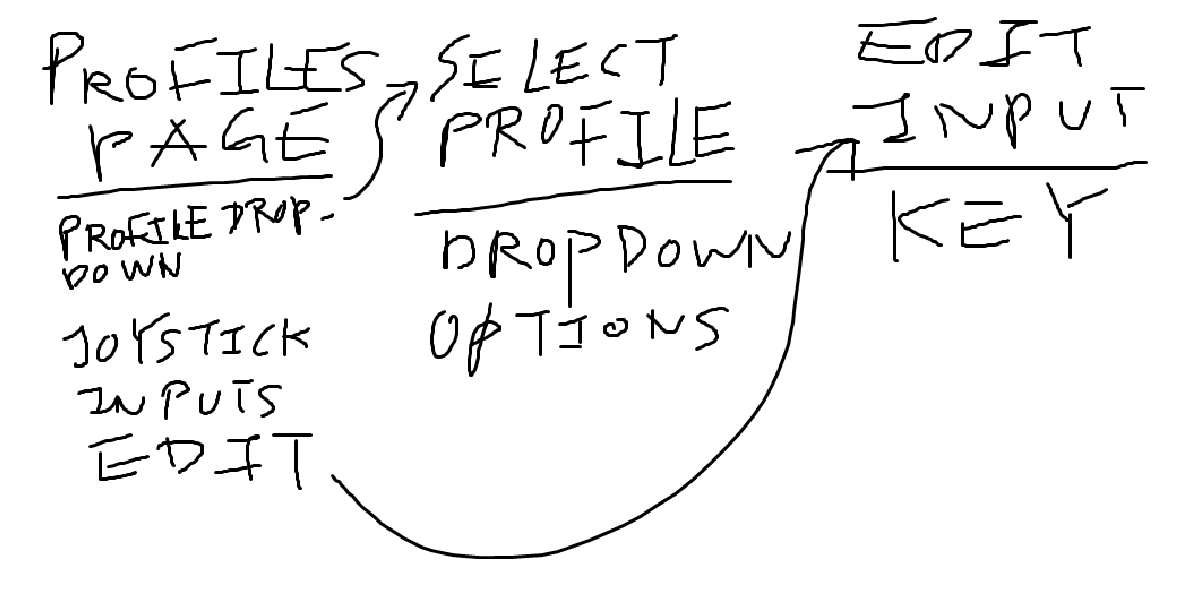 PROFILES
PAGE
PROFILE DROP-
DOWN
JOYSTICK
INPUTS
EDIT
SELECT
PROFILE
DROPDOWN
OPTIONS
EDIT
INPUT
KEY